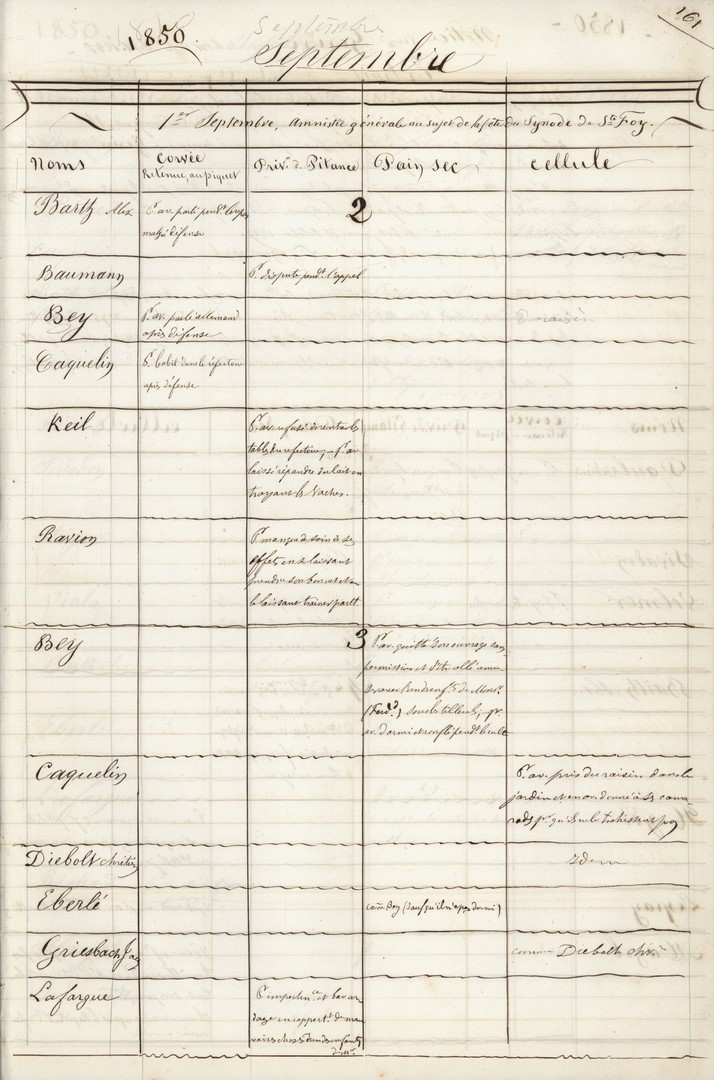 161
1850.
Septembre
Septembre
1er Septembre, Amnistie générale au sujet de la fête du Synode de Ste Foy.
Noms
Corvée
Retenue, au piquet
Priv. d. Pitance
Pain sec
cellule
Barth Alex
Pr. av. parlé pendt.
malgré défense
2
Baumann
Pr. dispute pendt. l'appel
Bey
Pr. av. parlé
après défense
Caquelin
Pr. babil dans le réfectoire
après défense
Keil
Pr. av. refusé de
tables du refectoire, Pr. av.
laissé répandre du lait en
trayant les Vaches.
Ravion
Pr. manque de soin de ses
effets en se laissant
prendre son bonnet et en
le laissant trainer partt.
Bey
3
Pr. av. quitté son ouvrage sans
permission et
avec de Monsr.
(Ferdd.) sous les tilleuls, pr.
av. dormi et ronflé pendt. le culte
Caquelin
Pr. av. pris du raisin dans le
jardin et en av. donné à ses cama-
rades pr. qu'ils ne le trahissent pas
Diebolt chrétien
idem
Eberlé
comme Bey (sauf qu'il n'a pas dormi)
Griesbach Jaq
comme Diebolt chr.
Lafargue
Pr. impertince. et bavar-
dage en rapportt. de mau-
vaises choses